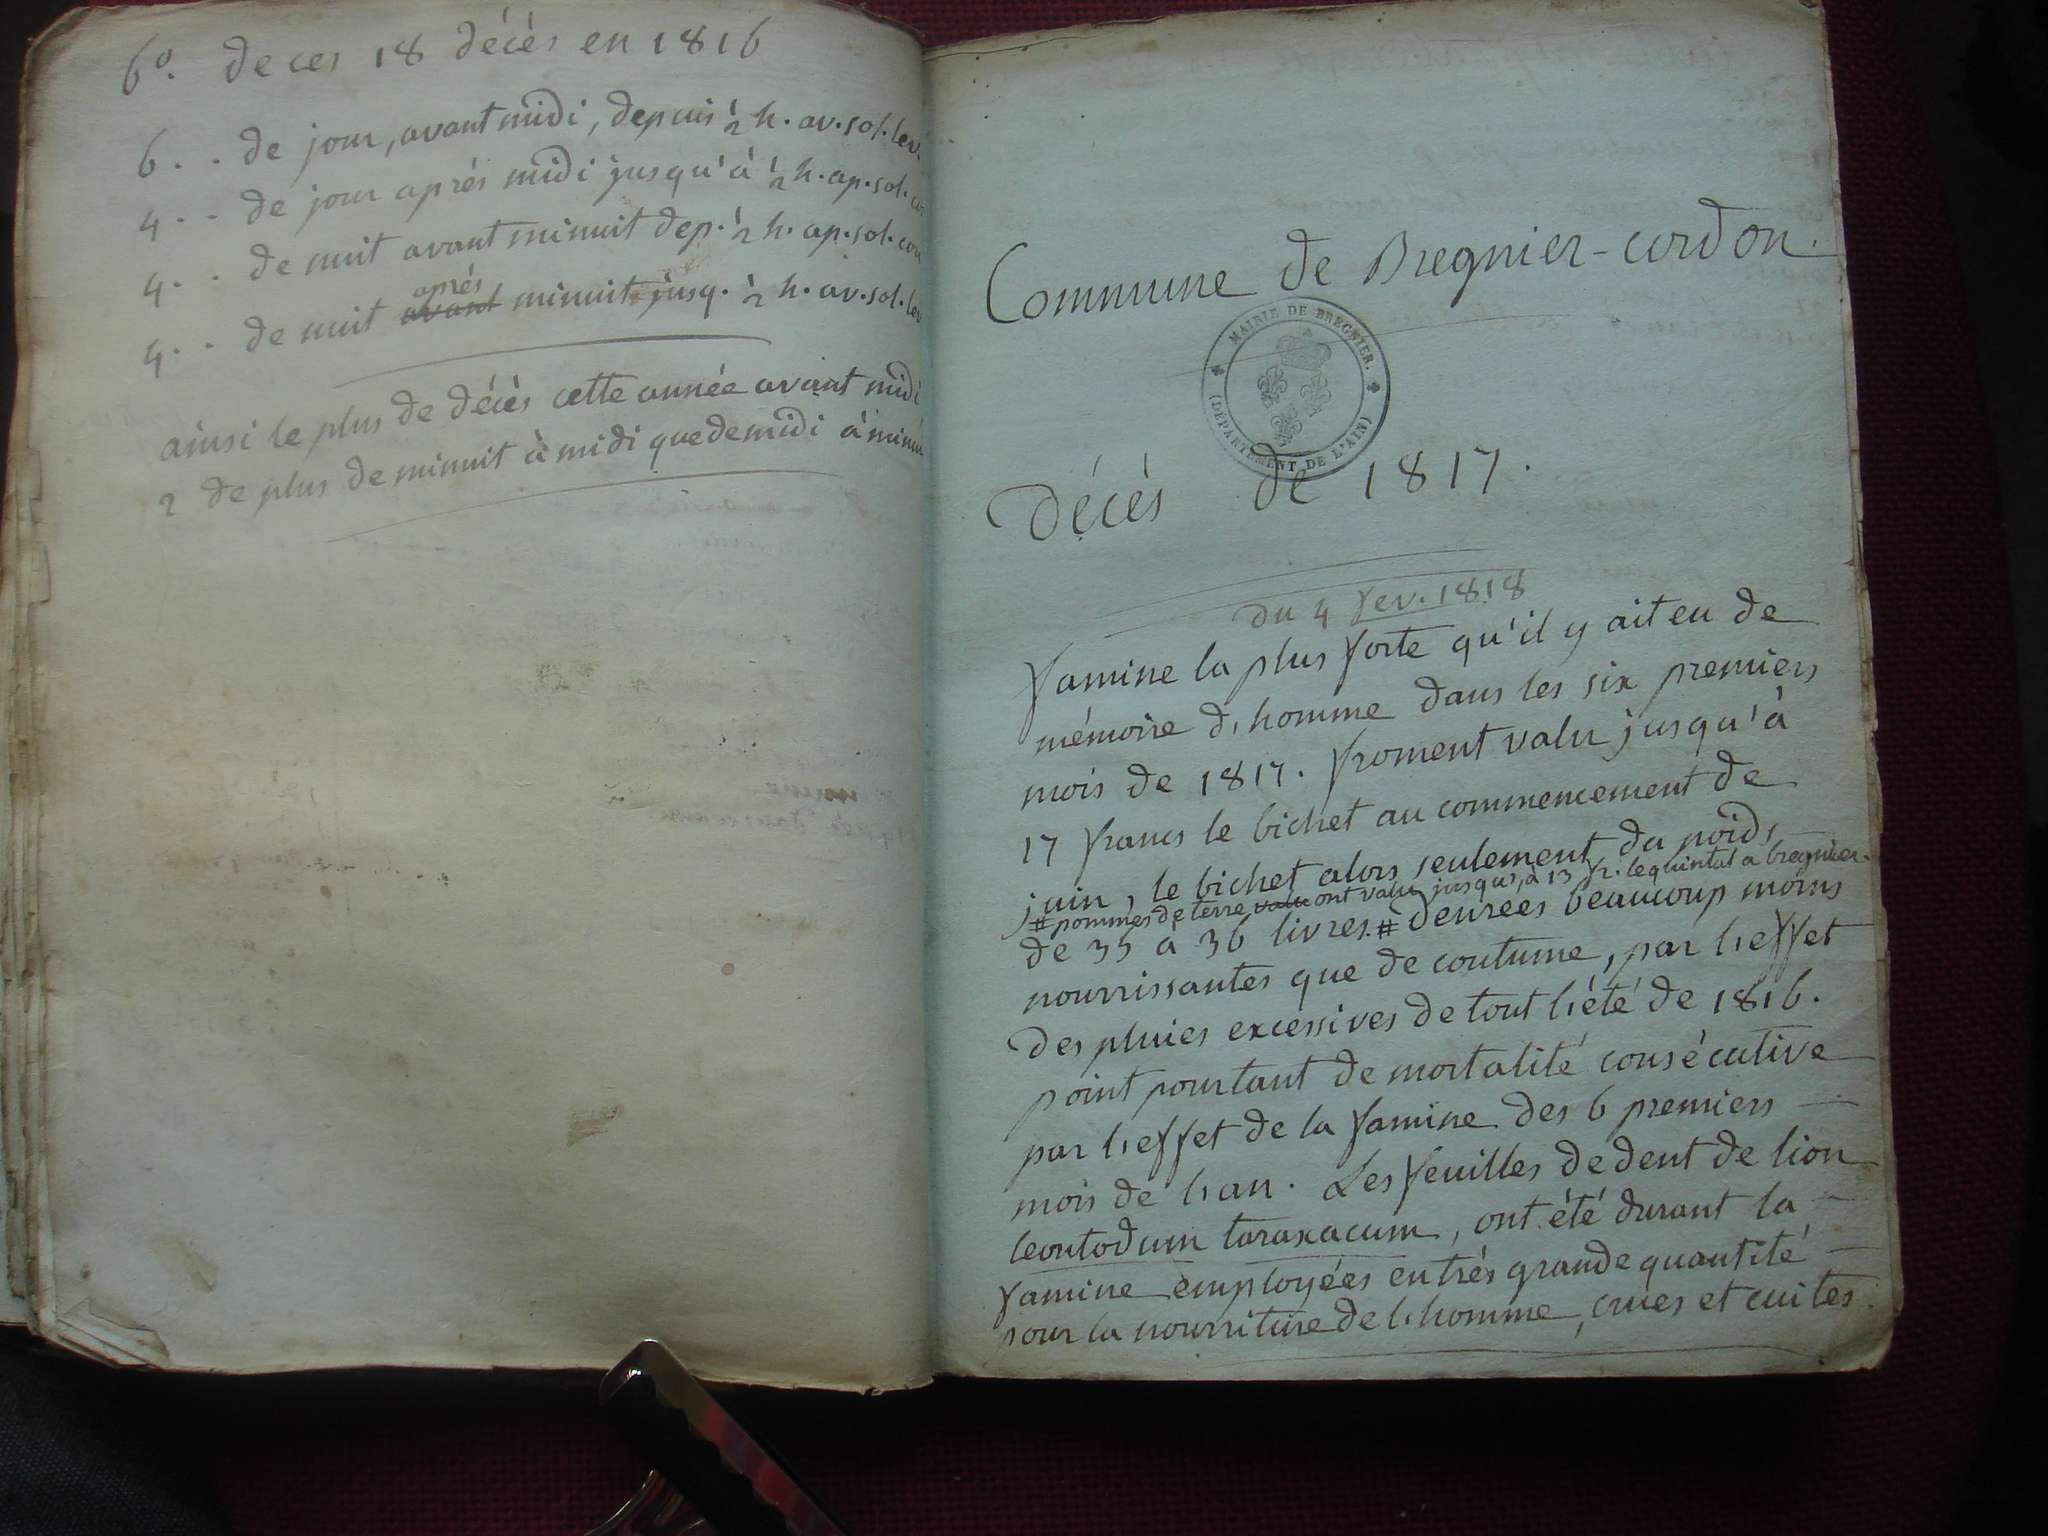 6º. de ces 18 décès en 1816
6 . . de jour, avant midi, depuis ½ h. av. sol. lev.
4 . . de jour après midi jusqu'à ½ h. ap. sol. cou
4 . . de nuit avant minuit dep. ½ h. ap. sol. cou
après
4 . . de nuit avant minuit jusq. ½ h. av. sol. lev
ainsi le plus de décès cette année avant midi
2 de plus de minuit à midi que de midi à minui
Commune de Bregnier-cordon.
MAIRIE DE BREGNIER.
(DÉPARTEMENT DE L'AIN)
Décès de 1817.
du 4 fev. 1818
famine la plus forte qu'il y ait eu de
mémoire d'homme dans les six premiers
mois de 1817. froment valu jusqu'à
17 francs le bichet au commencement de
juin, le bichet alors seulement du poids
# pommes de terre valu ont valu jusqu'à 13 fr. le quintal a bregnier.
de 35 à 36 livres. # denrées beaucoup moins
nourrissantes que de coutume, par l'effet
des pluies excessives de tout l'été de 1816.
point pourtant de mortalité consécutive
par l'effet de la famine des 6 premiers
mois de l'an. Les feuilles de dent de lion
leontodum taraxacum, ont été durant la
famine employées en très grande quantité
pour la nourriture de l'homme, crues et cuites.